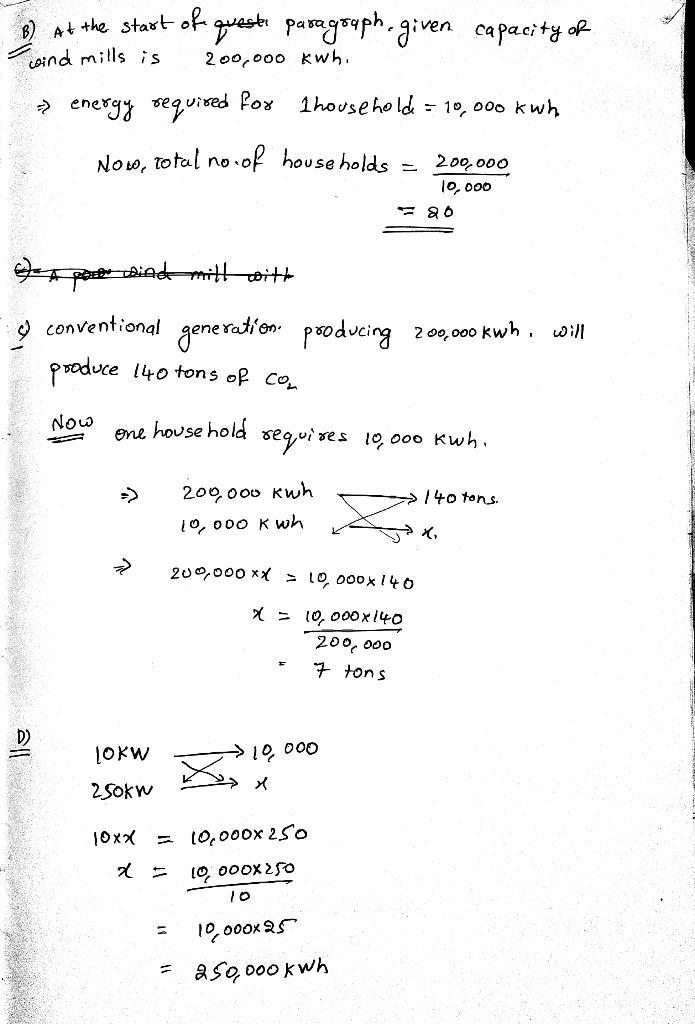 B) At the start of quest paragraph, given capacity of
wind mills is 200,000 kwh.
⇒ energy required for 1household = 10,000 kwh
Now, Total no.of households = 200,000
10,000
= 20
c) A power wind mill with
c) conventional generation producing 200,000 kwh, will
produce 140 tons of CO2
Now one household requires 10,000 kwh.
⇒ 200,000 kwh → 140 tons.
10,000 kwh → x.
⇒ 200,000 x x = 10,000x140
x = 10,000x140
200,000
= 7 tons
D)
10KW → 10,000
250KW → x
10xx = 10,000x250
x = 10,000x250
10
= 10,000x25
= 250,000 kwh